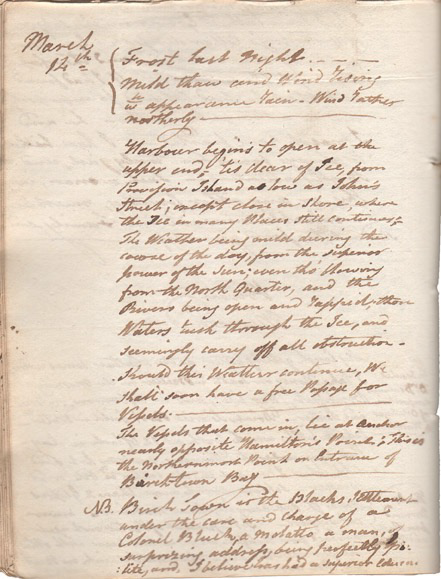 March
14th
Frost last Night. - - -
Mild thaw and Wind rising
wth appearance rain - Wind rather
northerly -
Harbour begins to open at the
upper end, tis clear of Ice, from
Provision Island as low as John's
Street; except close in Shore, where
the Ice in many Places still continues,
The Weather being mild during the
course of the day, from the superior
power of the Sun; even tho' blowing
from the North Quarter, and the
Rivers being open and those
Waters rush through the Ice, and
seemingly carry off all obstruction -
Should this Weather continue, We
shall soon have a free Passage for
Vessels. -
The Vessels that come in, lie at anchor
nearly opposite Hamilton's Point; This is
the Northernmost Point on Entrance of
Birchtown Bay
NB. Birch Town is the Blacks Settlement
under the care and charge of a
Colonel Bluck, a Molatto, a man, of
surprizing address, being perfectly po-
:lite, and, I believe has had a superior Educa